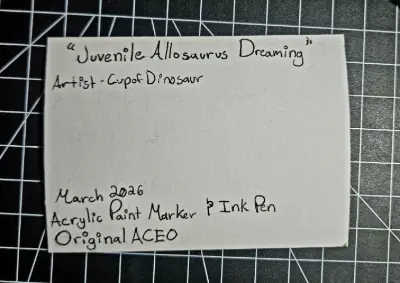 "Juvenile Allosaurus Dreaming"
Artist - CupofDinosaur
March 2026
Acrylic Paint Marker & Ink Pen
Original ACEO